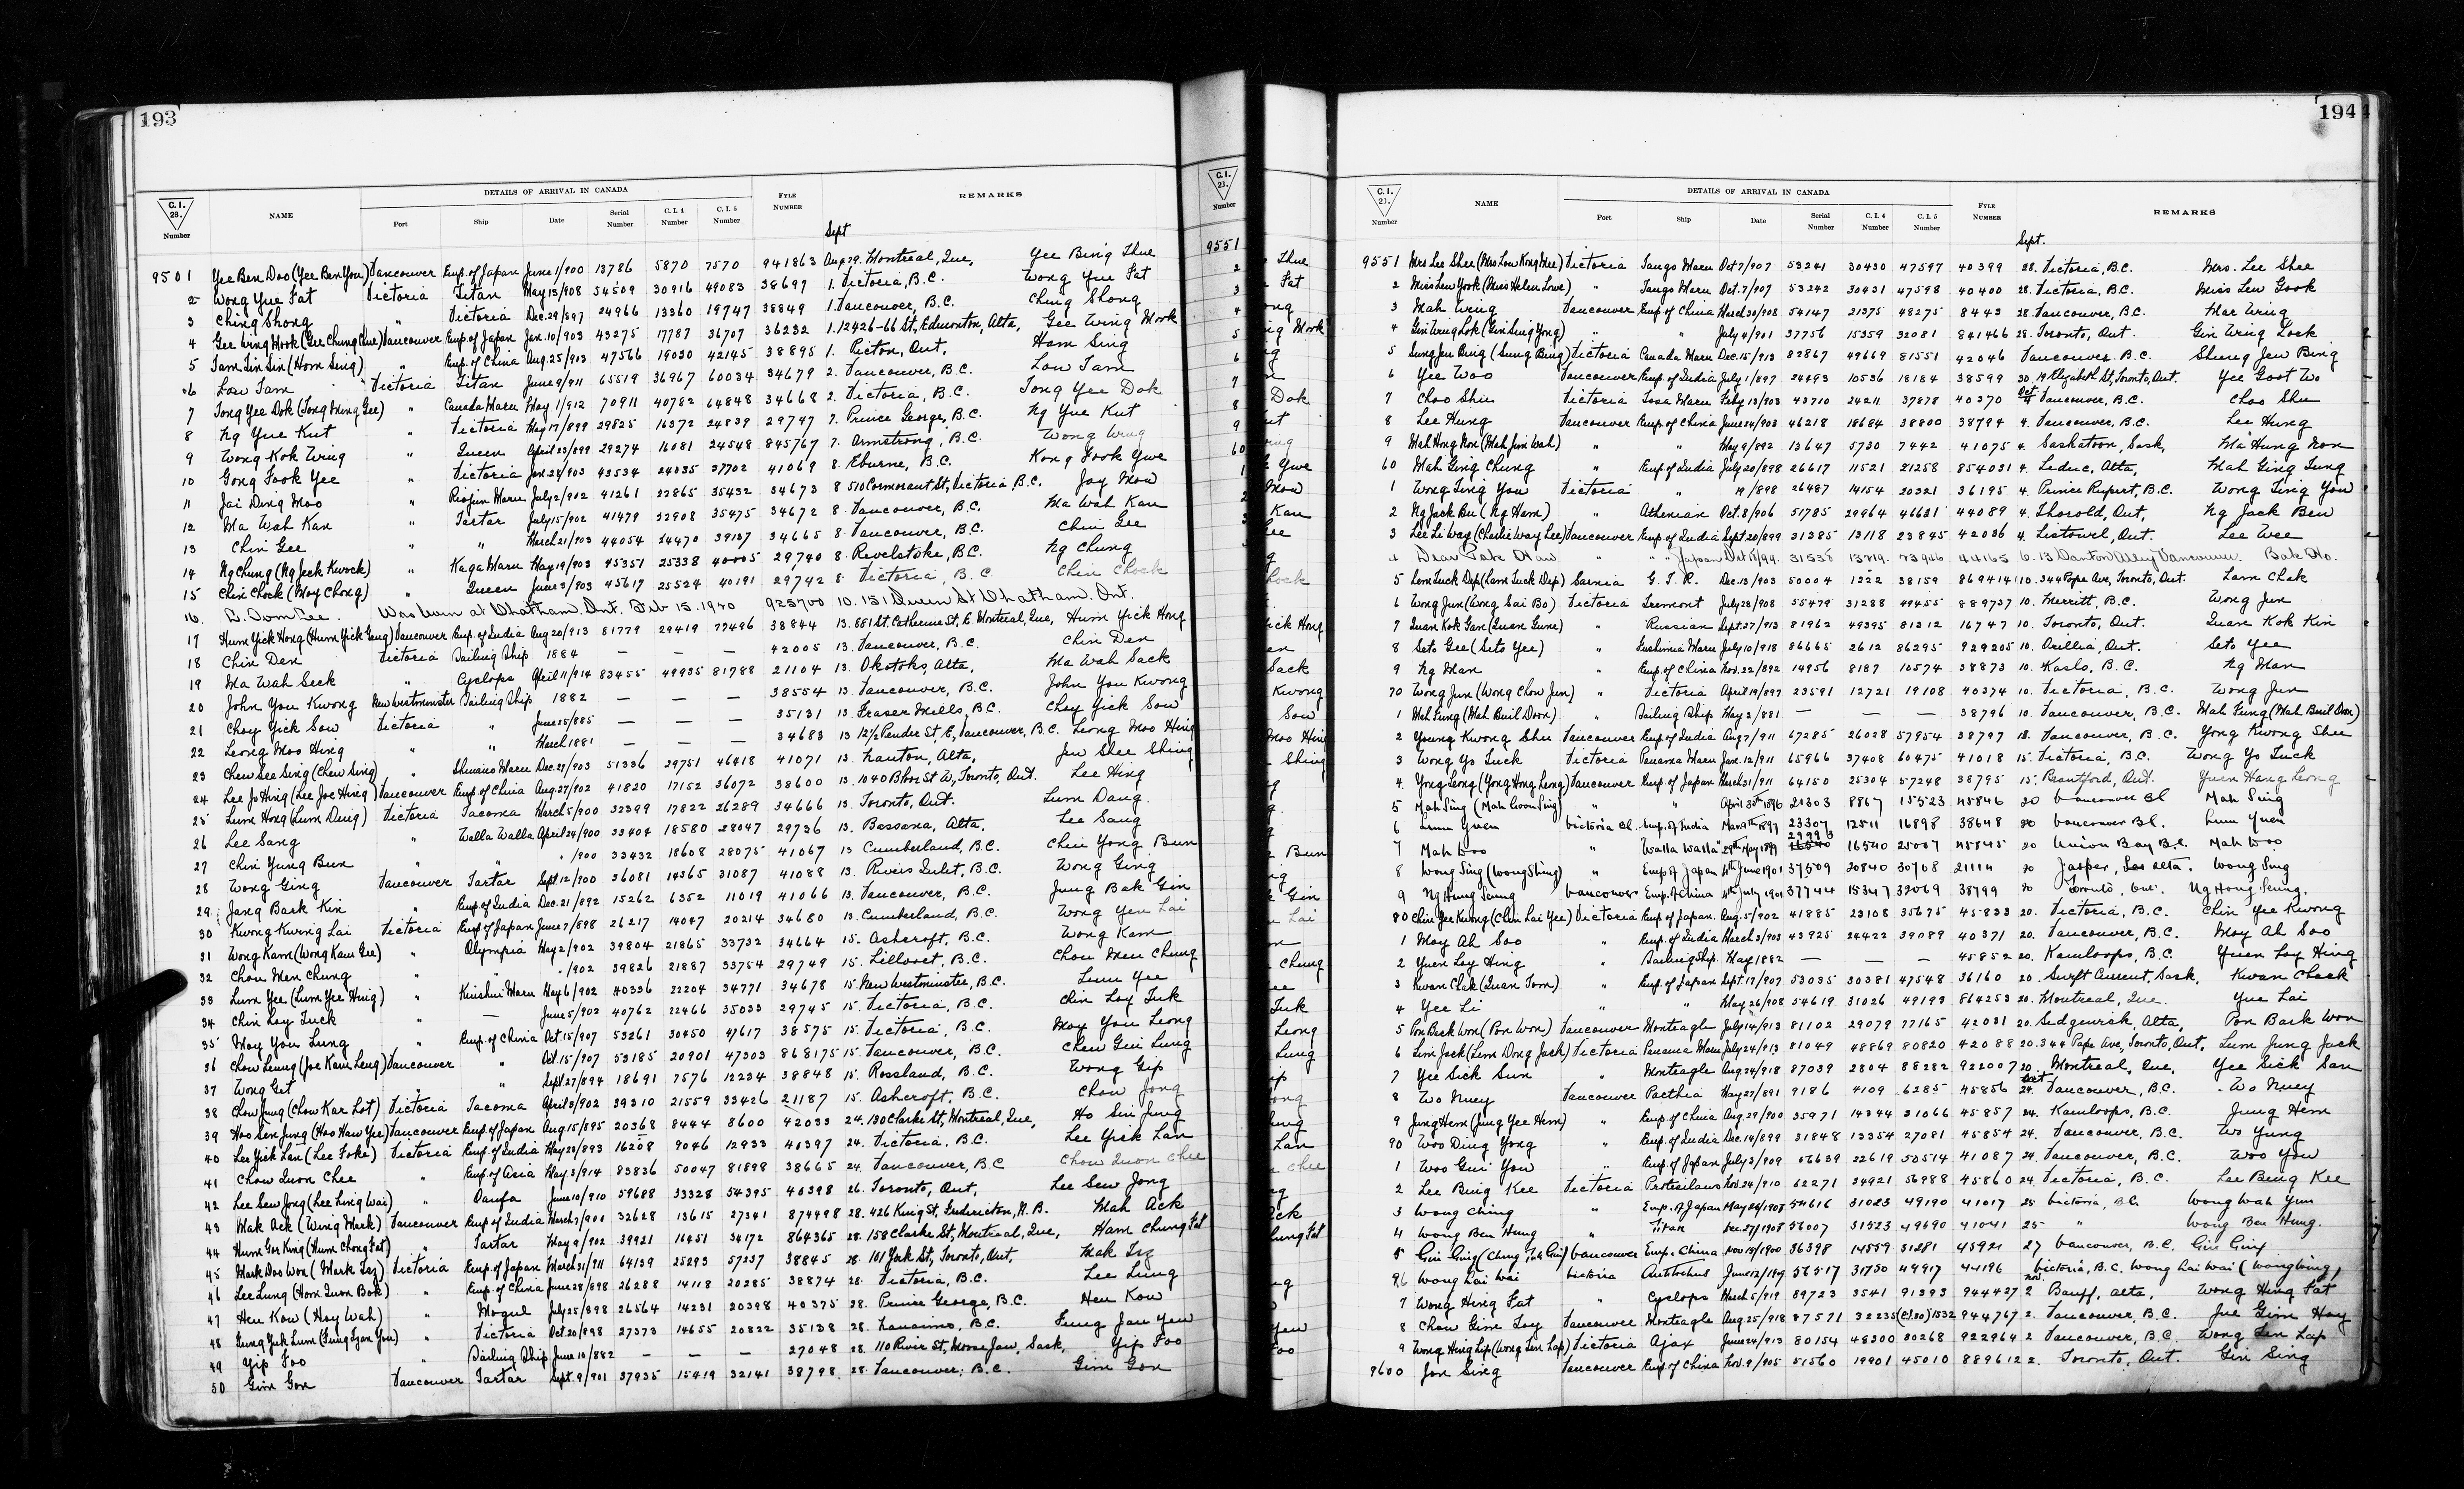 193
DETAILS OF ARRIVAL IN CANADA
C.I. 28. Number NAME Port Ship Date Serial Number C.I. 4 Number C.I. 5 Number FYLE NUMBER REMARKS
Sept
9501 Yee Ben Doo (Yee Ben You) Vancouver Emp. of Japan June 1/900 13786 5870 7570 941863 Aug 29. Montreal, Que, Yee Bing Shue
2 Wong Yue Fat Victoria Titan May 13/908 54509 30916 49083 38697 1. Victoria, B.C. Wong Yue Fat
3 Ching Shong " Victoria Dec. 29/897 24966 13360 19747 38849 1. Vancouver, B.C. Ching Shong
4 Gee Wing Mook (Gee Chung Chue) Vancouver Emp. of Japan Jan. 10/903 43275 17787 36707 36232 1. 12426-66 St, Edmonton, Alta, Gee Wing Mook
5 Tam Sin Sin (Hom Sing) " Emp. of China Aug. 25/903 47566 19030 42145 38895 1. Picton, Ont, Ham Sing
6 Low Tam Victoria Titan June 9/911 65519 36967 60034 34679 2. Vancouver, B.C. Low Tam
7 Tong Yee Dok " Canada Maru May 1/912 70911 40782 64848 34668 2. Victoria, B.C. Tong Yee Dok
8 Ng Yue Kut " Victoria May 17/899 29825 16372 24839 29747 7. Prince George, B.C. Ng Yue Kut
9 Wong Kok Wing " Queen April 23/899 29274 16081 24548 845767 7. Armstrong, B.C. Wong Wing
10 Gong Fook Yee " Victoria Jan. 28/903 43534 24035 37702 41069 8. Eburne, B.C. Kong Fook Ywe
11 Jai Ding Moo " Riojun Maru July 2/902 41261 22865 35432 34673 8 510 Cormorant St, Victoria B.C. Joy Mow
12 Ma Wah Kan " Tartar July 15/902 41479 22908 35475 34672 8. Vancouver, B.C. Ma Wah Kan
13 Chin Gee " " March 21/903 44054 24470 39137 34665 8. Vancouver, B.C. Chin Gee
14 Ng Chung (Ng Jeck Kwock) " Kaga Maru May 19/903 45351 25338 40005 29740 8. Revelstoke, B.C. Ng Chung
15 Chin Chock (Moy Chong) " Queen June 3/903 45617 25524 40191 29742 8. Victoria, B.C. Chin Chock
16. Was born at Chatham, Ont. Feb 15. 1920 923700 10. 151 Queen St Chatham. Ont.
17 Hum Yick Hong (Hum Yick Gang) Vancouver Emp. of India Aug 20/913 81779 29419 77496 38844 13. 851 St. Catherine St, E. Montreal, Que, Hum Yick Hong
18 Chin Den Victoria Sailing Ship 1884 — — — 42005 13. Vancouver, B.C. Chin Den
19 Ma Wah Seck " Cyclops April 11/914 83455 49935 81788 21104 13. Okotoks, Alta, Ma Wah Sack
20 John You Kwong New Westminster Sailing Ship 1882 — — — 38554 13. Vancouver, B.C. John You Kwong
21 Choy Yick Sow Victoria " June 25/885 — — — 35131 13. Fraser Mills, B.C. Choy Yick Sow
22 Leong Moo Hing " " March 1881 — — — 34683 13 12½ Pender St, E, Vancouver, B.C. Leong Moo Hing
23 Chew See Sing (Chew Sing) " Shinano Maru Dec. 29/903 51336 29751 46418 41071 13. Nanton, Alta, Jew Shee Shing
24 Lee Jo Hing (Lee Joe Hing) Vancouver Emp. of China Aug. 27/902 41820 17152 36072 38600 13. 1040 Bloor St W, Toronto, Ont. Lee Hing
25 Lum Hong (Lum Dung) Victoria Tacoma March 5/900 32399 17822 26289 34666 13. Toronto, Ont. Lum Dang.
26 Lee Sang " Walla Walla April 24/900 33404 18580 28047 29736 13. Bassano, Alta, Lee Sang
27 Chin Yung Bun " " " /900 33432 18608 28075 41067 13 Cumberland, B.C. Chin Yong Bun
28 Wong Ging Vancouver Tartar Sept. 12/900 36081 14365 31087 41088 13. Rivers Inlet, B.C. Wong Ging
29 Jang Bark Kin " Emp. of India Dec. 21/892 15262 6352 11019 41066 13. Vancouver, B.C. Jung Bak Gin
30 Kwong Kwing Lai Victoria Emp. of Japan June 7/898 26217 14047 20214 34680 13. Cumberland, B.C. Wong Yen Lai
31 Wong Kam (Wong Kam Gee) " Olympia May 2/902 39804 21865 33732 34664 15. Ashcroft, B.C. Wong Kam
32 Chou Men Chung " " " /902 39826 21887 33754 29749 15. Lillooet, B.C. Chou Men Chung
33 Lum Yee (Lum Yee Hing) " Kinshiu Maru May 6/902 40336 22204 34771 34678 15. New Westminster, B.C. Lum Yee
34 Chin Loy Tuck " — June 5/902 40762 22466 35033 29745 15. Victoria, B.C. Chin Loy Tuk
35 Moy You Lung " Emp. of China Oct. 15/907 53261 30450 47617 38575 15. Victoria, B.C. Moy You Leong
36 Chow Leung (Joe Kam Leng) Vancouver " Oct. 15/907 53185 20901 47303 868175 15. Vancouver, B.C. Chew Gui Lung
37 Wong Get " " Sept 27/894 18691 7576 12234 38848 15. Rossland, B.C. Wong Gip
38 Chow Jung (Chow Kar Lot) Victoria Tacoma April 8/902 39310 21559 33426 21187 15. Ashcroft, B.C. Chow Jong
39 Hoo Sen Jung (Hoo Haw Yee) Vancouver Emp. of Japan Aug 15/895 20368 8444 8600 42033 24. 130 Clarke St, Montreal, Que, Ho Sin Jung
40 Lee Yick Lan (Lee Foke) Victoria Emp. of India May 23/893 16208 9046 12933 40397 24. Victoria, B.C. Lee Yick Lan
41 Chow Quon Chee " Emp. of Asia May 3/914 83836 50047 81898 38665 24. Vancouver, B.C. Chow Quon Chee
42 Lee Sew Jong (Lee Ling Wai) " Oanfa June 10/910 59688 33328 54395 40398 26. Toronto, Ont, Lee Sew Jong
43 Mak Ack (Wing Mark) Vancouver Emp. of India March 7/900 32628 13615 27341 874498 28. 426 King St, Fredericton, N.B. Mah Ack
44 Hum Goe King (Hum Chong Fat) " Tartar May 9/902 39921 16451 34172 864365 28. 158 Clarke St, Montreal, Que, Ham Chung Fat
45 Mark Doo Won (Mark Isz) Victoria Emp. of Japan March 31/911 64139 25293 57237 38845 28. 101 York St, Toronto, Ont, Mak Isz
46 Lee Lung (Hom Quon Bok) " Emp. of China June 28/898 26288 14118 20285 38874 28. Victoria, B.C. Lee Lung
47 Heu Kow (Hoy Wah) " Mogul July 25/898 26564 14231 20398 40375 28. Prince George, B.C. Heu Kow
48 Fung Yuk Lum " Victoria Oct. 20/898 27373 14655 20822 35138 28. Nanaimo, B.C. Fung Jan Yen
49 Yip Foo " Sailing Ship June 10/882 — — — 27048 28. 110 River St, Moose Jaw, Sask, Yip Foo
50 Gim Gon Vancouver Tartar Sept. 9/901 37935 15419 32141 38798 28. Vancouver, B.C. Gim Gon
194
DETAILS OF ARRIVAL IN CANADA
C.I. 23. Number NAME Port Ship Date Serial Number C.I. 4 Number C.I. 5 Number FYLE NUMBER REMARKS
Sept.
9551 Mrs Lee Shee (Mrs Low Kong Mee) Victoria Tango Maru Oct 7/907 53241 30430 47597 40399 28. Victoria, B.C. Mrs. Lee Shee
2 Miss Lew Yook (Miss Helen Lowe) " Tango Maru Oct. 7/907 53242 30431 47598 40400 28. Victoria, B.C. Miss Lew Gook
3 Mah Wing Vancouver Emp. of China March 30/908 54147 21375 48275 8443 28. Vancouver, B.C. Mar Wing
4 Gin Wing Lok (Gin Sing Yong) " " July 4/901 37756 15359 32081 841466 28. Toronto, Ont. Gin Wing Lock
5 Sung Jeu Bing (Sung Bing) Victoria Canada Maru Dec. 15/913 82867 49669 81551 42046 Vancouver. B.C. Sheung Jew Bing
6 Yee Woo Vancouver Emp. of India July 1/897 24493 10536 18184 38599 30. 19 Elizabeth St, Toronto, Ont. Yee Goot Wo
7 Choo Shu Victoria Tosa Maru Feby 13/903 43710 24211 37878 40370 Oct 4 Vancouver, B.C. Choo Shu
8 Lee Hung Vancouver Emp. of China June 24/903 46218 18684 38800 38794 4. Vancouver, B.C. Lee Hung
9 Mah Hong Non (Mah Jim Wah) " " May 9/892 13647 5730 7442 41075 4. Saskatoon, Sask, Ma Hung Non
60 Mah Ging Chung " Emp. of India July 20/898 26617 11521 21258 854031 4. Leduc, Alta, Mah Ging Tung
1 Wong Ting You Victoria " 19/898 26487 14154 20321 36195 4. Prince Rupert, B.C. Wong Ting You
2 Ng Jack Bu (Ng Ham) " Athenian Oct. 8/906 51785 29964 46631 44089 4. Thorold, Ont, Ng Jack Ben
3 Lee Li Way (Charlie Way Lee) Vancouver Emp. of China Sept. 20/899 31385 13118 23845 42036 4. Listowel, Ont. Lee Wee
4 " " Japan Oct 15/99. 44165 6. Vancouver. Bak Ho.
5 Lam Luck Dep (Lam Tuck Dep) Sarnia G.T.R. Dec. 13/903 50004 1222 38159 869414 10. 344 Pape Ave, Toronto, Ont. Lam Chak
6 Wong Jun (Wong Sai Bo) Victoria Tremont July 28/908 55479 31288 49455 889737 10. Merritt, B.C. Wong Jun
7 Quan Kok Gan (Quan Gune) " Russian Sept. 27/913 81962 49395 81312 16747 10. Toronto, Ont. Quan Kok Kin
8 Seto Gee (Seto Yee) " Fushimi Maru July 10/918 86665 2612 86295 929205 10. Orillia, Ont. Seto Yee
9 Ng Man " Emp. of China Nov. 22/892 14956 8187 10574 38873 10. Kaslo, B.C. Ng Man
70 Wong Jun (Wong Chow Jun) " Victoria April 19/897 23591 12721 19108 40374 10. Victoria, B.C. Wong Jun
1 Mah Fung (Mah Buil Doon) " Sailing Ship May 2/881 — — — 38796 10. Vancouver, B.C. Mah Fung (Mah Buil Don)
2 Young Kwong Shu Vancouver Emp. of India Aug 7/911 67285 26028 57954 38797 18. Vancouver, B.C. Yong Kwong Shee
3 Wong Yo Tuck Victoria Panama Maru Jan. 12/911 65966 37408 60475 41018 15. Victoria, B.C. Wong Yo Tuck
4. Yong Leong (Yong Hong Leng) Vancouver Emp. of Japan March 31/911 64150 25304 57248 38795 15. Brantford, Ont. Yuen Hang Leong
5 Mah Sing (Mah Goon Sing) " " April 30th 1896 21303 8867 15523 45846 20 Vancouver BC Mah Sing
6 Lum Yuen Victoria BC. Emp. of India Mar. 9th 1897 23307 12511 16898 38648 20 Vancouver B.C. Lum Yuen
7 Mah Woo " Walla Walla 29th May 1899 29993 16540 25007 45845 20 Union Bay B.C. Mah Woo
8 Wong Sing (Wong Shing) " Emp of Japan 11th June 1901 37509 20840 30708 21114 20 Jasper, Alta. Wong Sing
9 Ng Hung Seung Vancouver Emp. of China 4th July 1901 37744 15347 32069 38799 20 Toronto, Ont. Ng Hong Seung.
80 Chin Yee Kwong (Chin Lai Yee) Victoria Emp. of Japan. Aug. 5/902 41885 23108 35675 45833 20. Victoria, B.C. Chin Yee Kwong
1 Moy Ah Soo " Emp. of India March 3/903 43925 24422 39089 40371 20. Vancouver, B.C. Moy Ah Soo
2 Yuen Loy Hing " Sailing Ship. May 1882 — — — 45852 20. Kamloops, B.C. Yuen Loy Hing
3 Kwan Chak (Quan Tom) " Emp. of Japan Sept. 17/907 53035 30381 47548 36160 20. Swift Current, Sask, Kwan Chack
4 Yee Li " " May 26/908 54619 31026 49193 864253 20. Montreal, Que. Yue Lai
5 Pon Back Won (Pon Won) Vancouver Monteagle July 14/913 81102 29079 77165 42031 20. Sedgewick, Alta, Pon Bark Won
6 Lim Jack (Lum Dong Jack) Victoria Panama Maru July 24/913 81049 48869 80820 42088 20. 344 Pape Ave, Toronto, Ont, Lum Jung Jack
7 Yee Sick Sun " Monteagle Aug 24/918 87039 2804 88282 922007 20. Montreal, Que, Yee Sick San
8 Wo Nuey Vancouver Parthia May 27/891 9186 4109 6285 45856 Oct 24. Vancouver, B.C. Wo Nuey
9 Jung Hem (Jung Yee Hem) " Emp. of China Aug. 29/900 35971 14344 31066 45857 24. Kamloops, B.C. Jung Hem
90 Woo Ding Yong " Emp. of India Dec. 14/899 31848 13354 27081 45854 24. Vancouver, B.C. Wo Yung
1 Woo Gui You " Emp. of Japan July 3/909 56639 22619 50514 41087 24. Vancouver, B.C. Woo You
2 Lee Bing Kee Victoria Protesilaus Nov. 24/910 62271 34921 56988 45860 24. Victoria, B.C. Lee Bing Kee
3 Wong Ching " Emp. of Japan May 26/1908 54616 31023 49190 41017 25 Victoria, B.C. Wong Wah Yum
4 Wong Ben Hung " Titan Dec. 27/1908 56007 31523 49690 41041 25 " Wong Ben Hung.
5 Gin Ging (Ching Tok Gin) Vancouver Emp. China Nov 13/1900 36398 14559 31281 45921 27 Vancouver, B.C. Gin Ging
96 Wong Lai Wai Victoria Antilochus June 12/1909 56517 31750 49917 44196 Victoria, B.C. Wong Lai Wai (Wong Wing)
7 Wong Hing Fat " Cyclops March 5/919 89723 3541 91393 944427 Nov. 2 Banff, Alta, Wong Hing Fat
8 Chow Gim Toy Vancouver Monteagle Aug 25/918 87571 32235 (C.I.30) 1532 944767 2. Vancouver, B.C. Jue Gim Hoy
9 Wong Hing Lip (Wong Sen Lap) Victoria Ajax June 24/913 80154 48300 80268 922964 2 Vancouver, B.C. Wong Sen Lap
9600 Jan Sing Vancouver Emp. of China Nov. 9/905 51560 19901 45010 889612 2. Toronto, Ont. Gin Sing